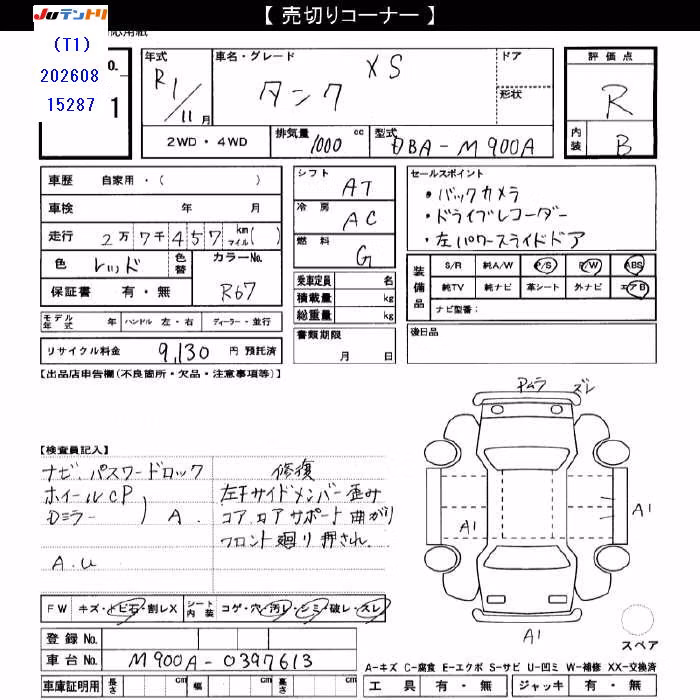 【 売切りコーナー 】
Juテントリ
応用紙
(T1)
202608
15287
0.
1
年式 R1/11月
車名・グレード タンク XS
ドア
形状
評価点 R
内装 B
2WD・4WD
排気量 1000 cc
型式 DBA-M900A
車歴 自家用・( )
車検 年 月
走行 2万7千457 km マイル( )
色 レッド 色替 カラーNo. R67
保証書 有・無
モデル年式 年 ハンドル 左・右 ディーラー・並行
リサイクル料金 9,130 円 預託済
シフト AT
冷房 AC
燃料 G
乗車定員 名
積載量 kg
総重量 kg
書類期限
月 日
セールスポイント
・バックカメラ
・ドライブレコーダー
・左パワースライドドア
装備品
S/R 純A/W P/S P/W ABS
純TV 純ナビ 革シート 外ナビ エアB
ナビ型番:
後日品
【出品店申告欄(不良箇所・欠品・注意事項等)】
【検査員記入】
ナビ、パスワードロック
ホイールCP
Dミラー ) A.
A.u
修復
左Fサイドメンバー歪み
コア.ロアサポート曲がり
フロント廻り押され.
アムラ ズレ
A1
A1
A1
スペア
FW キズ・トビ石・割レX シート内装 コゲ・穴・汚レ・シミ・破レ・スレ
登録No.
車台No. M900A-0397613
車庫証明用 長さ cm 幅 cm 高さ cm
A-キズ C-腐食 E-エクボ S-サビ U-凹ミ W-補修 XX-交換済
工具 有・無 ジャッキ 有・無